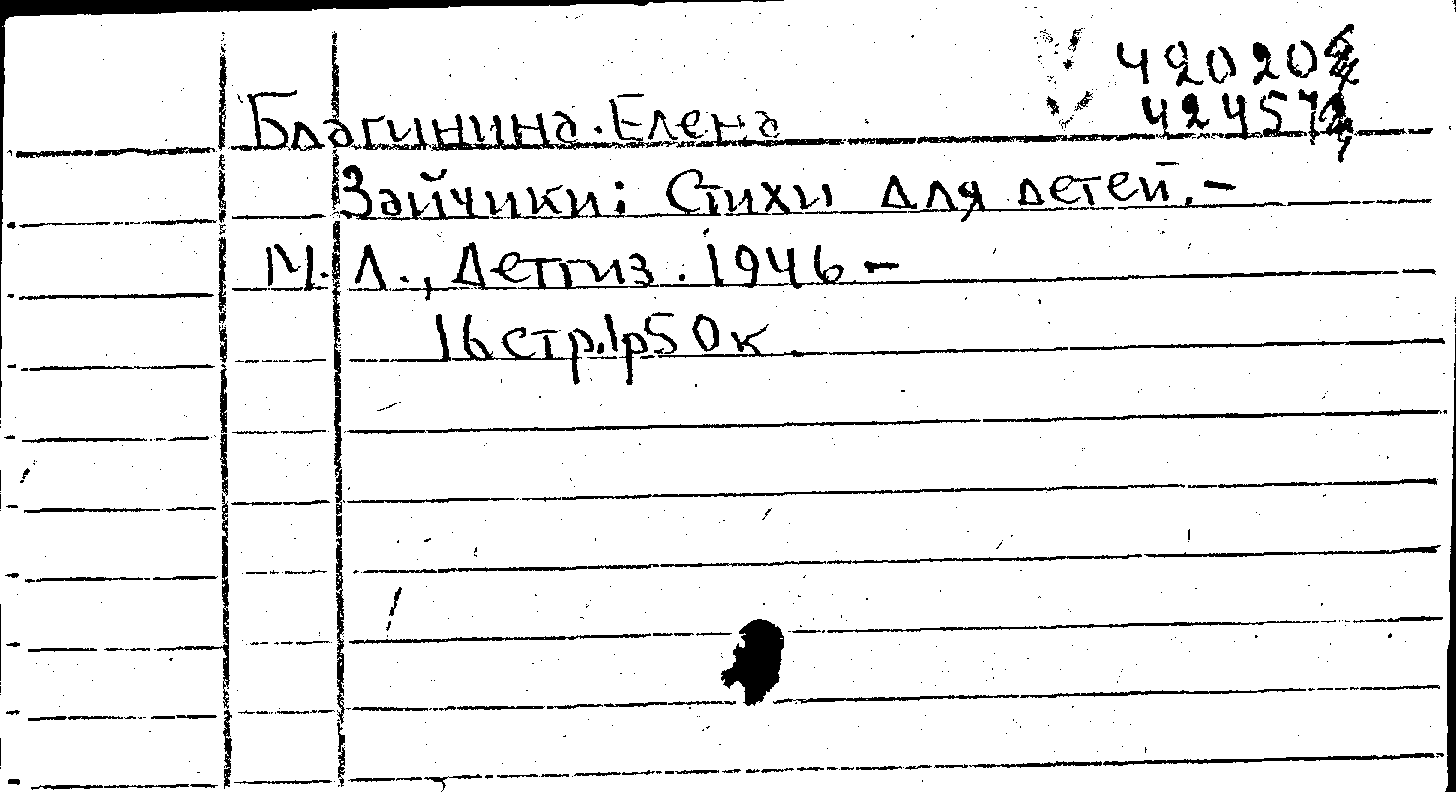 42020
42457
Благинина. Елена
Зайчики: Стихи для детей. –
М. Л., Детгиз. 1946 –
16 стр. 1р 50к